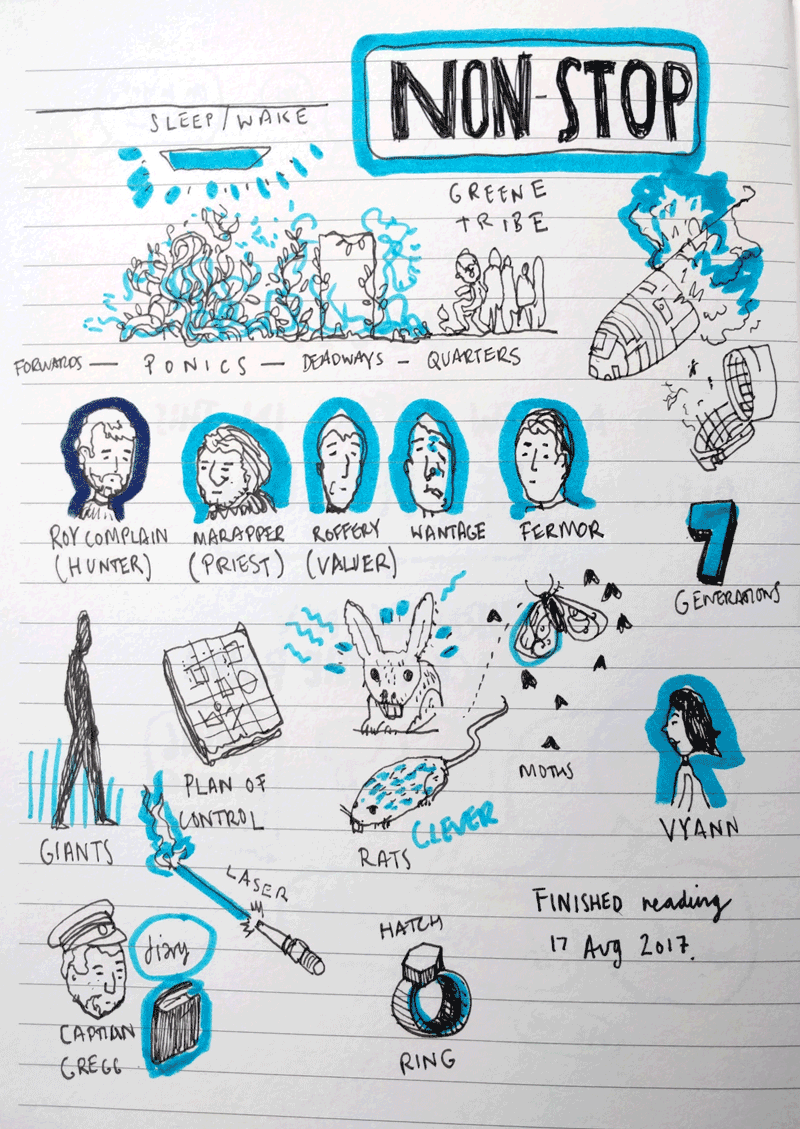 NON-STOP
SLEEP/WAKE
GREENE
TRIBE
FORWARDS — PONICS — DEADWAYS — QUARTERS
ROY COMPLAIN
(HUNTER)
MARAPPER
(PRIEST)
ROFFERY
(VALUER)
WANTAGE
FERMOR
7
GENERATIONS
GIANTS
PLAN OF
CONTROL
RATS
CLEVER
MOTHS
VYANN
LASER
FINISHED reading
17 Aug 2017.
CAPTIAN
GREGG
diary
HATCH
RING